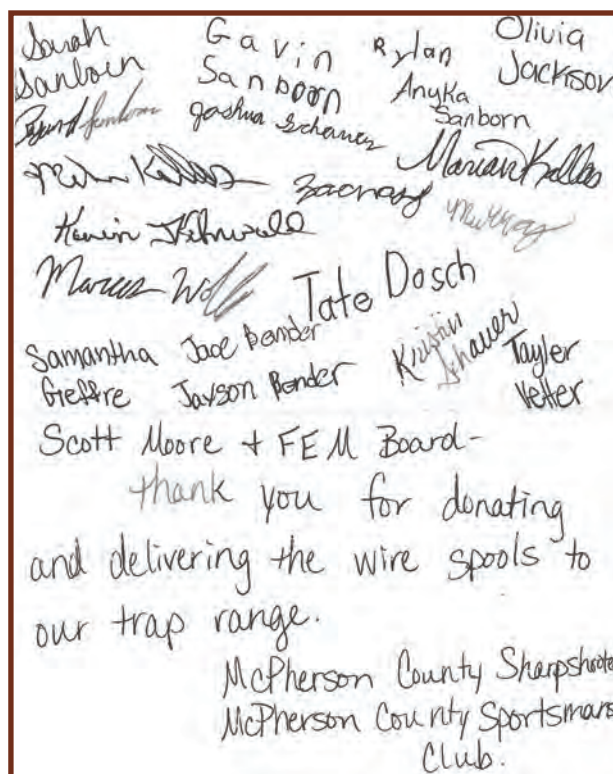 Sarah Sanborn
Gavin Sanborn
Rylan
Anyka Sanborn
Olivia Jackson
Joshua Schauer
Marian Kallas
Zachary
Kevin
Murray
Marcus Wolff
Tate Dosch
Samantha Gieffre
Jace Bender
Jayson Bender
Kristin Schauer
Tayler Vetter
Scott Moore + FEM Board-
thank you for donating
and delivering the wire spools to
our trap range.
McPherson County Sharpshoote
McPherson County Sportsmans
Club.